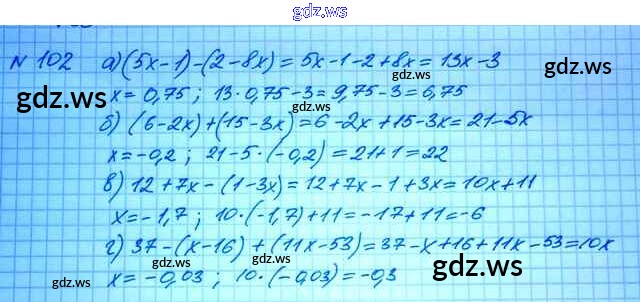 gdz.ws
№ 102 а) (5x-1)-(2-8x) = 5x-1-2+8x = 13x-3
gdz.ws gdz.ws
gdz.ws x = 0,75 ; 13·0,75-3 = 9,75-3 = 6,75
б) (6-2x)+(15-3x) = 6-2x+15-3x = 21-5x
gdz.ws
x = -0,2 ; 21-5·(-0,2) = 21+1 = 22
в) 12+7x-(1-3x) = 12+7x-1+3x = 10x+11
x = -1,7 ; 10·(-1,7)+11 = -17+11 = -6
gdz.ws gdz.ws
г) 37-(x-16)+(11x-53) = 37-x+16+11x-53 = 10x
gdz.ws gdz.ws gdz.ws
x = -0,03 ; 10·(-0,03) = -0,3